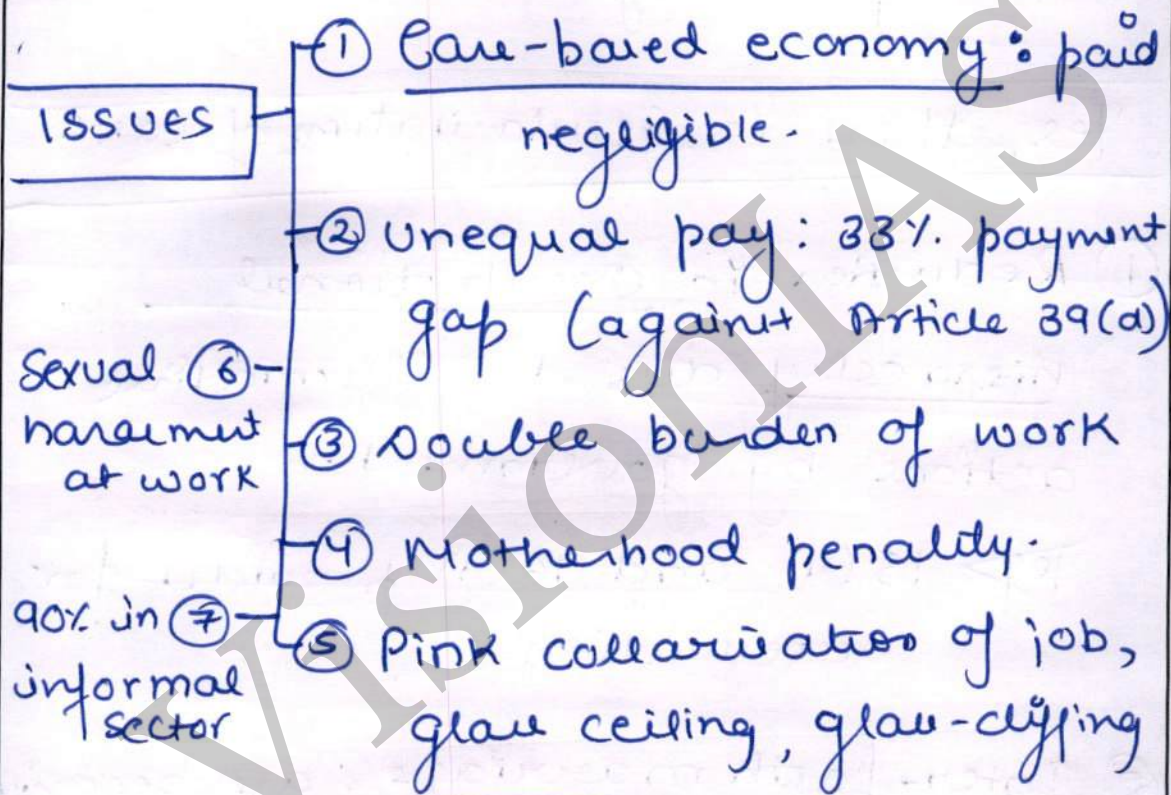 ISSUES
① Care-based economy: paid
negligible.
② Unequal pay: 33%. payment
gap (against Article 39(a))
③ Double burden of work
④ Motherhood penalty.
⑤ Pink collarisation of job,
glass ceiling, glass-cliffing
Sexual ⑥
harassment
at work
90% in ⑦
informal
sector
VisionIAS